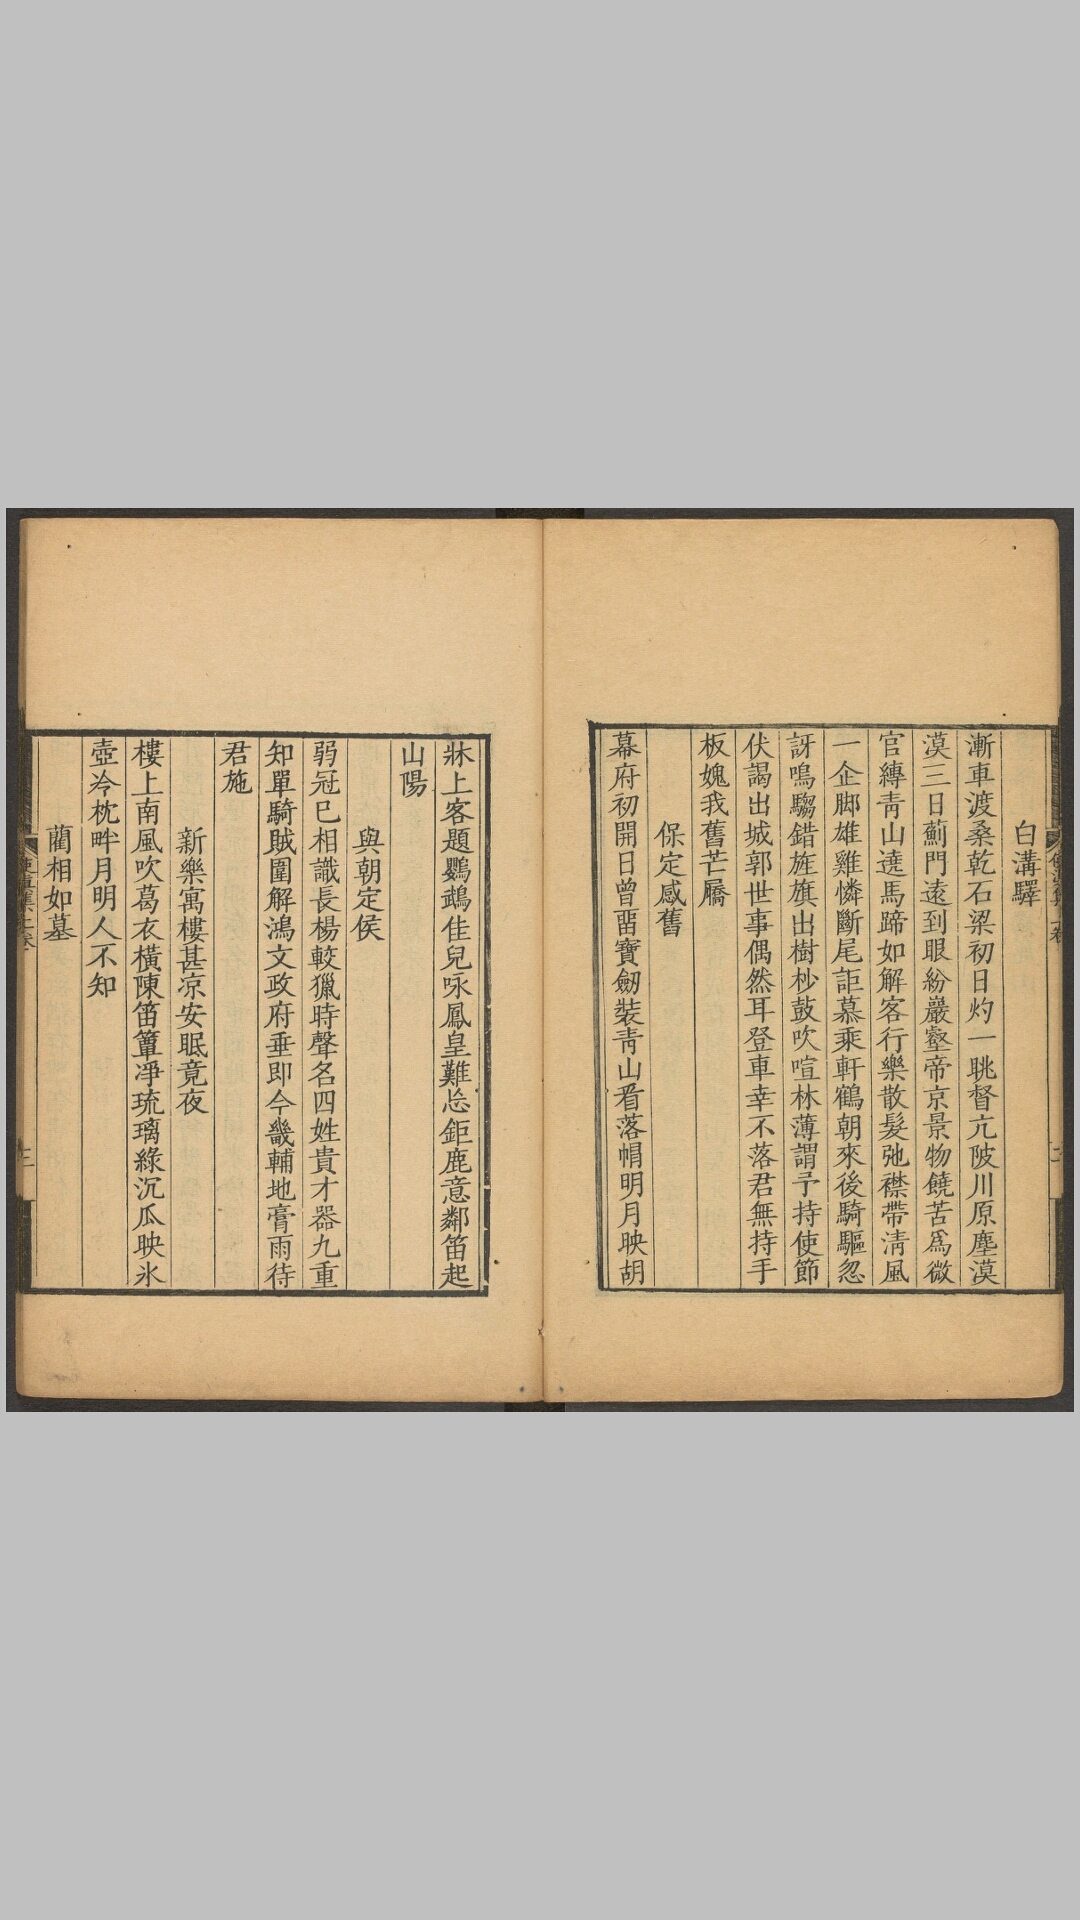 白溝驛
漸車渡桑乾石梁初日灼一眺督亢陂川原塵漠
漠三日薊門遠到眼紛巖壑帝京景物饒苦爲微
官縛靑山遶馬蹄如解客行樂散髮弛襟帶淸風
一企脚雄雞憐斷尾詎慕乘軒鶴朝來後騎驅忽
訝鳴騶錯旌旗出樹杪鼓吹喧林薄謂予持使節
伏謁出城郭世事偶然耳登車幸不落君無持手
板媿我舊芒屩
保定感舊
幕府初開日曾畱寶劒裝靑山看落帽明月映胡
牀上客題鸚鵡佳兒咏鳳皇難忘鉅鹿意鄰笛起
山陽
與朝定侯
弱冠巳相識長楊較獵時聲名四姓貴才器九重
知單騎賊圍解鴻文政府垂卽今畿輔地膏雨待
君施
新樂寓樓甚凉安眠竟夜
樓上南風吹葛衣橫陳笛簟凈琉璃綠沉瓜映氷
壺冷枕畔月明人不知
藺相如墓